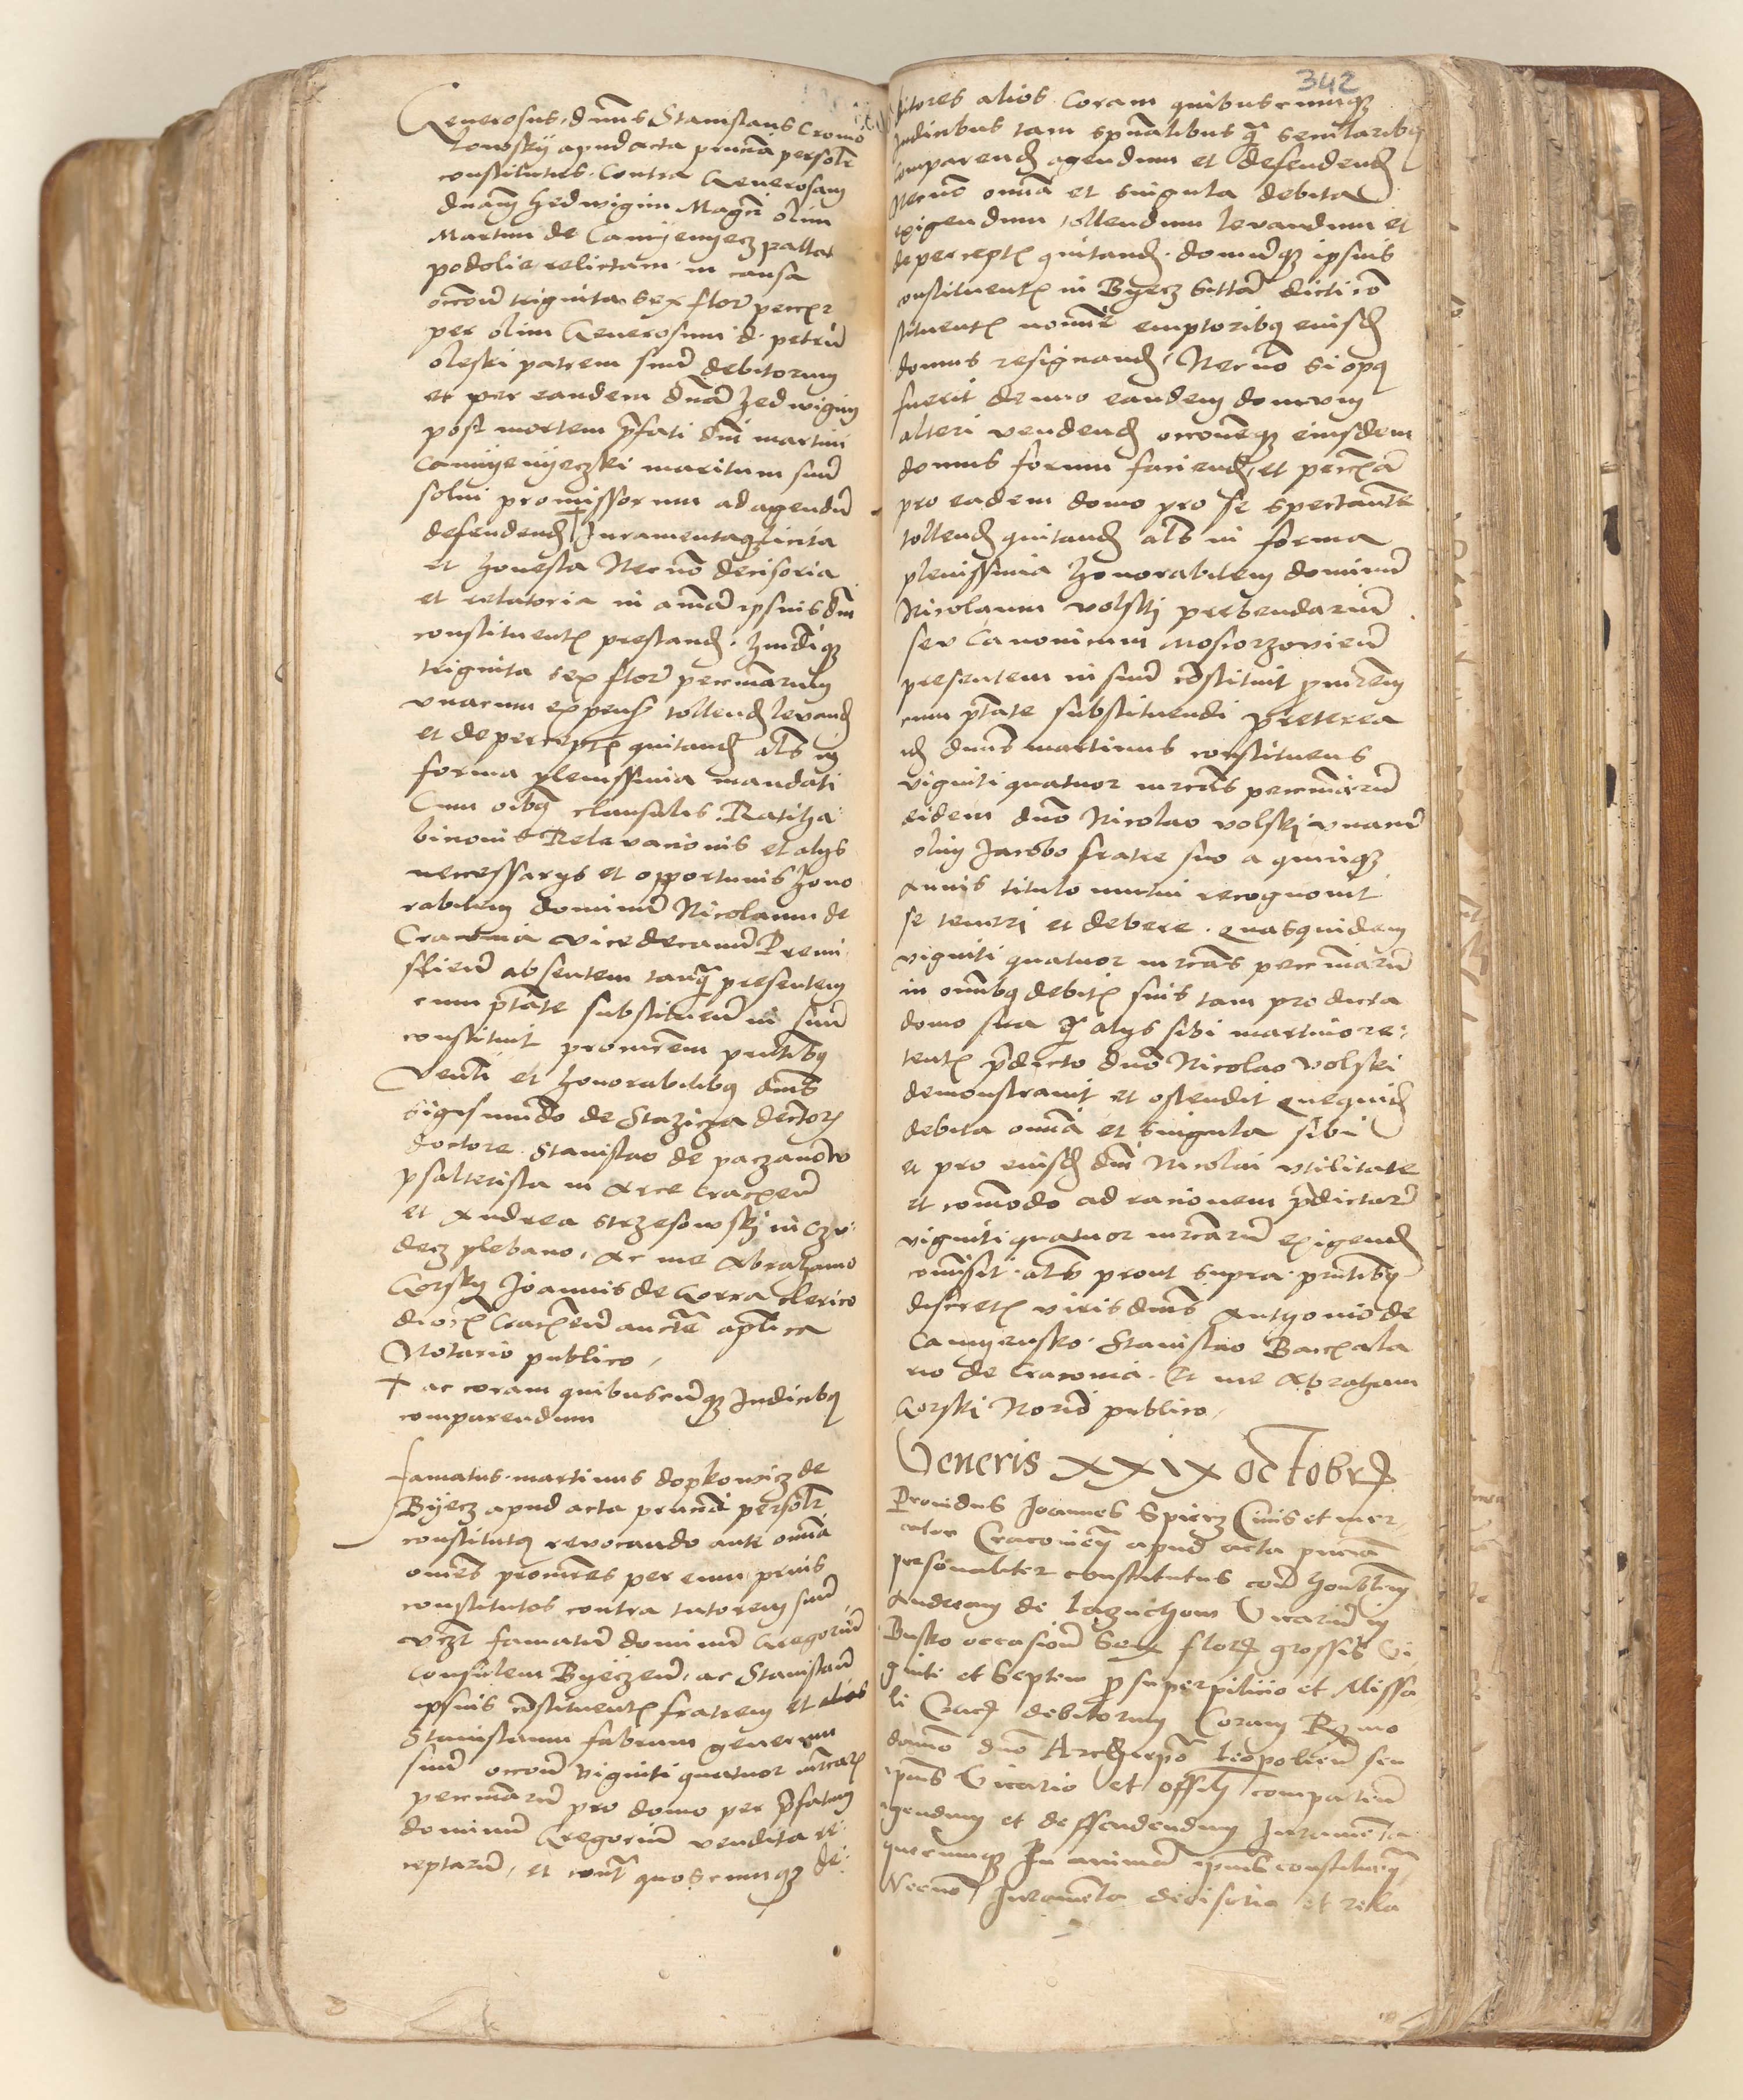 Generosus dnus Stanislaus Cromo
lowsky apud acta pnncia persolr
constitutus. Contra Generosam
dnam Hedwigim Magci olim
Martini de Camyenyecz pallat
podolie relictam in causa
occone triginta sex flor peccr
per olim Generosum d. petru
oleski patrem suu debitorum
et per eandem dnam Hedwigim
post mortem pfati dni martini
Camyenyeczki maritum suu
solui promissorum ad agendu
defendend † Iuramentaq licita
et honesta Necno decisoria
et relatoria in anima ipsius dni
constituent prestand. huiusq
triginta sex flor pecuniarum
vnacum expens tollend levand
et de percept quitand als in
forma plenissima mandati
Cum oibq clausulis. Ratiha
bicionis Relevacionis et alys
necessarys et opportunis Hono
rabilem dominu Nicolaum de
Cracovia vicedecanu Premi
slien absentem tanq presentem
cum ptate substituen in suu
constituit procurem pntibq
Venli et honorabilibq dnis
Sigismundo de Stazicza decretor
doctore Stanislao de paczanow
psalterista in Arce Cracoien
et Andrea Strzesowsky in Czu
decz plebano, Ac me Abrahamo
Gorsky Joannis de Gorra clerico
dioc Cracoien aucte aplica
Notario publico
† ac coram quibuscuq Iudicibq
comparendum
Famatus martinus dopkowicz de
Byecz apud acta pnncia persolr
constitutq revocando ante omia
omes procures per eum prius
constitutos contra tutorem suu
vczr famatu dominu Gregoriu
Consulem Byeczen, ac Stanislau
ipsius cstituent fratrem et alios
Stanislaum fabrum generum
suu occone viginti quatuor mrcar
pecuniaru pro domo per pfatum
dominu Gregoriu vendita re
ceptaru, et contr quoscumq de
342
bitores alios Coram quibuscumq
Iudicibus tam spualibus q secularibq
Comparend agendum et defendend
Necno omia et singula debita
exigendum tollendum levandum et
de percept quitand. domuq ipsius
constituent in Byecz sitta dicti co
stituent nomie emptoribq eiusd
domus resignand, Necno si opq
fuerit denuo eandem domum
alteri vendend occoneq eiusdem
domus forum faciend, et peccia
pro eadem domo pro se spectante
tollend quitand als in forma
plenissima Honorabilem dominu
Nicolaum volskj prebendariu
seu Canonicum moscorzovien
presentem in suu cstituit procurem
cum ptate substituendi preterea
id dnus martinus constituens
viginti quatuor mrcas pecuniaru
eidem dno Nicolao volskj vnacu
olim Jacobo fratre suo a quinq
Annis titulo mutui recognovit
se teneri et debere. Quasquidem
viginti quatuor mrcas pecuniaru
in omibq debit suis tam pro dicta
domo sua q alys sibi martino re
tent pdicto dno Nicolao Volski
demonstravit et ostendit Quequid
debita omia et singula sibi
et pro eiusd dni Nicolai vtilitate
et comodo ad racionem pdictaru
viginti quatuor mrcaru exigend
comisit. als prout supra. pntibq
discret viris dnis Anthonio de
Camyensko. Stanislao
rio de Cracovia. Et me Abraham
Gorski Norio publico
Veneris XXIX octobr
Providus Joannes Spiercz Civis et mer
cator Cracovien apud acta pncia
personaliter constitutus con honblem
Andream de Laznchow Vicariu in
Busko occasione Sex flor grossis vi
ginti et septem p superpilicio et Missa
li Crac debitorum Coram Rmo
domo dno Archiepo Leopolien seu
ipius Vicario et offili comparen
agendum et deffendendum Iuramenta
quecumq In anima ipius constituen
Necno Iuramenta decisoria et rela